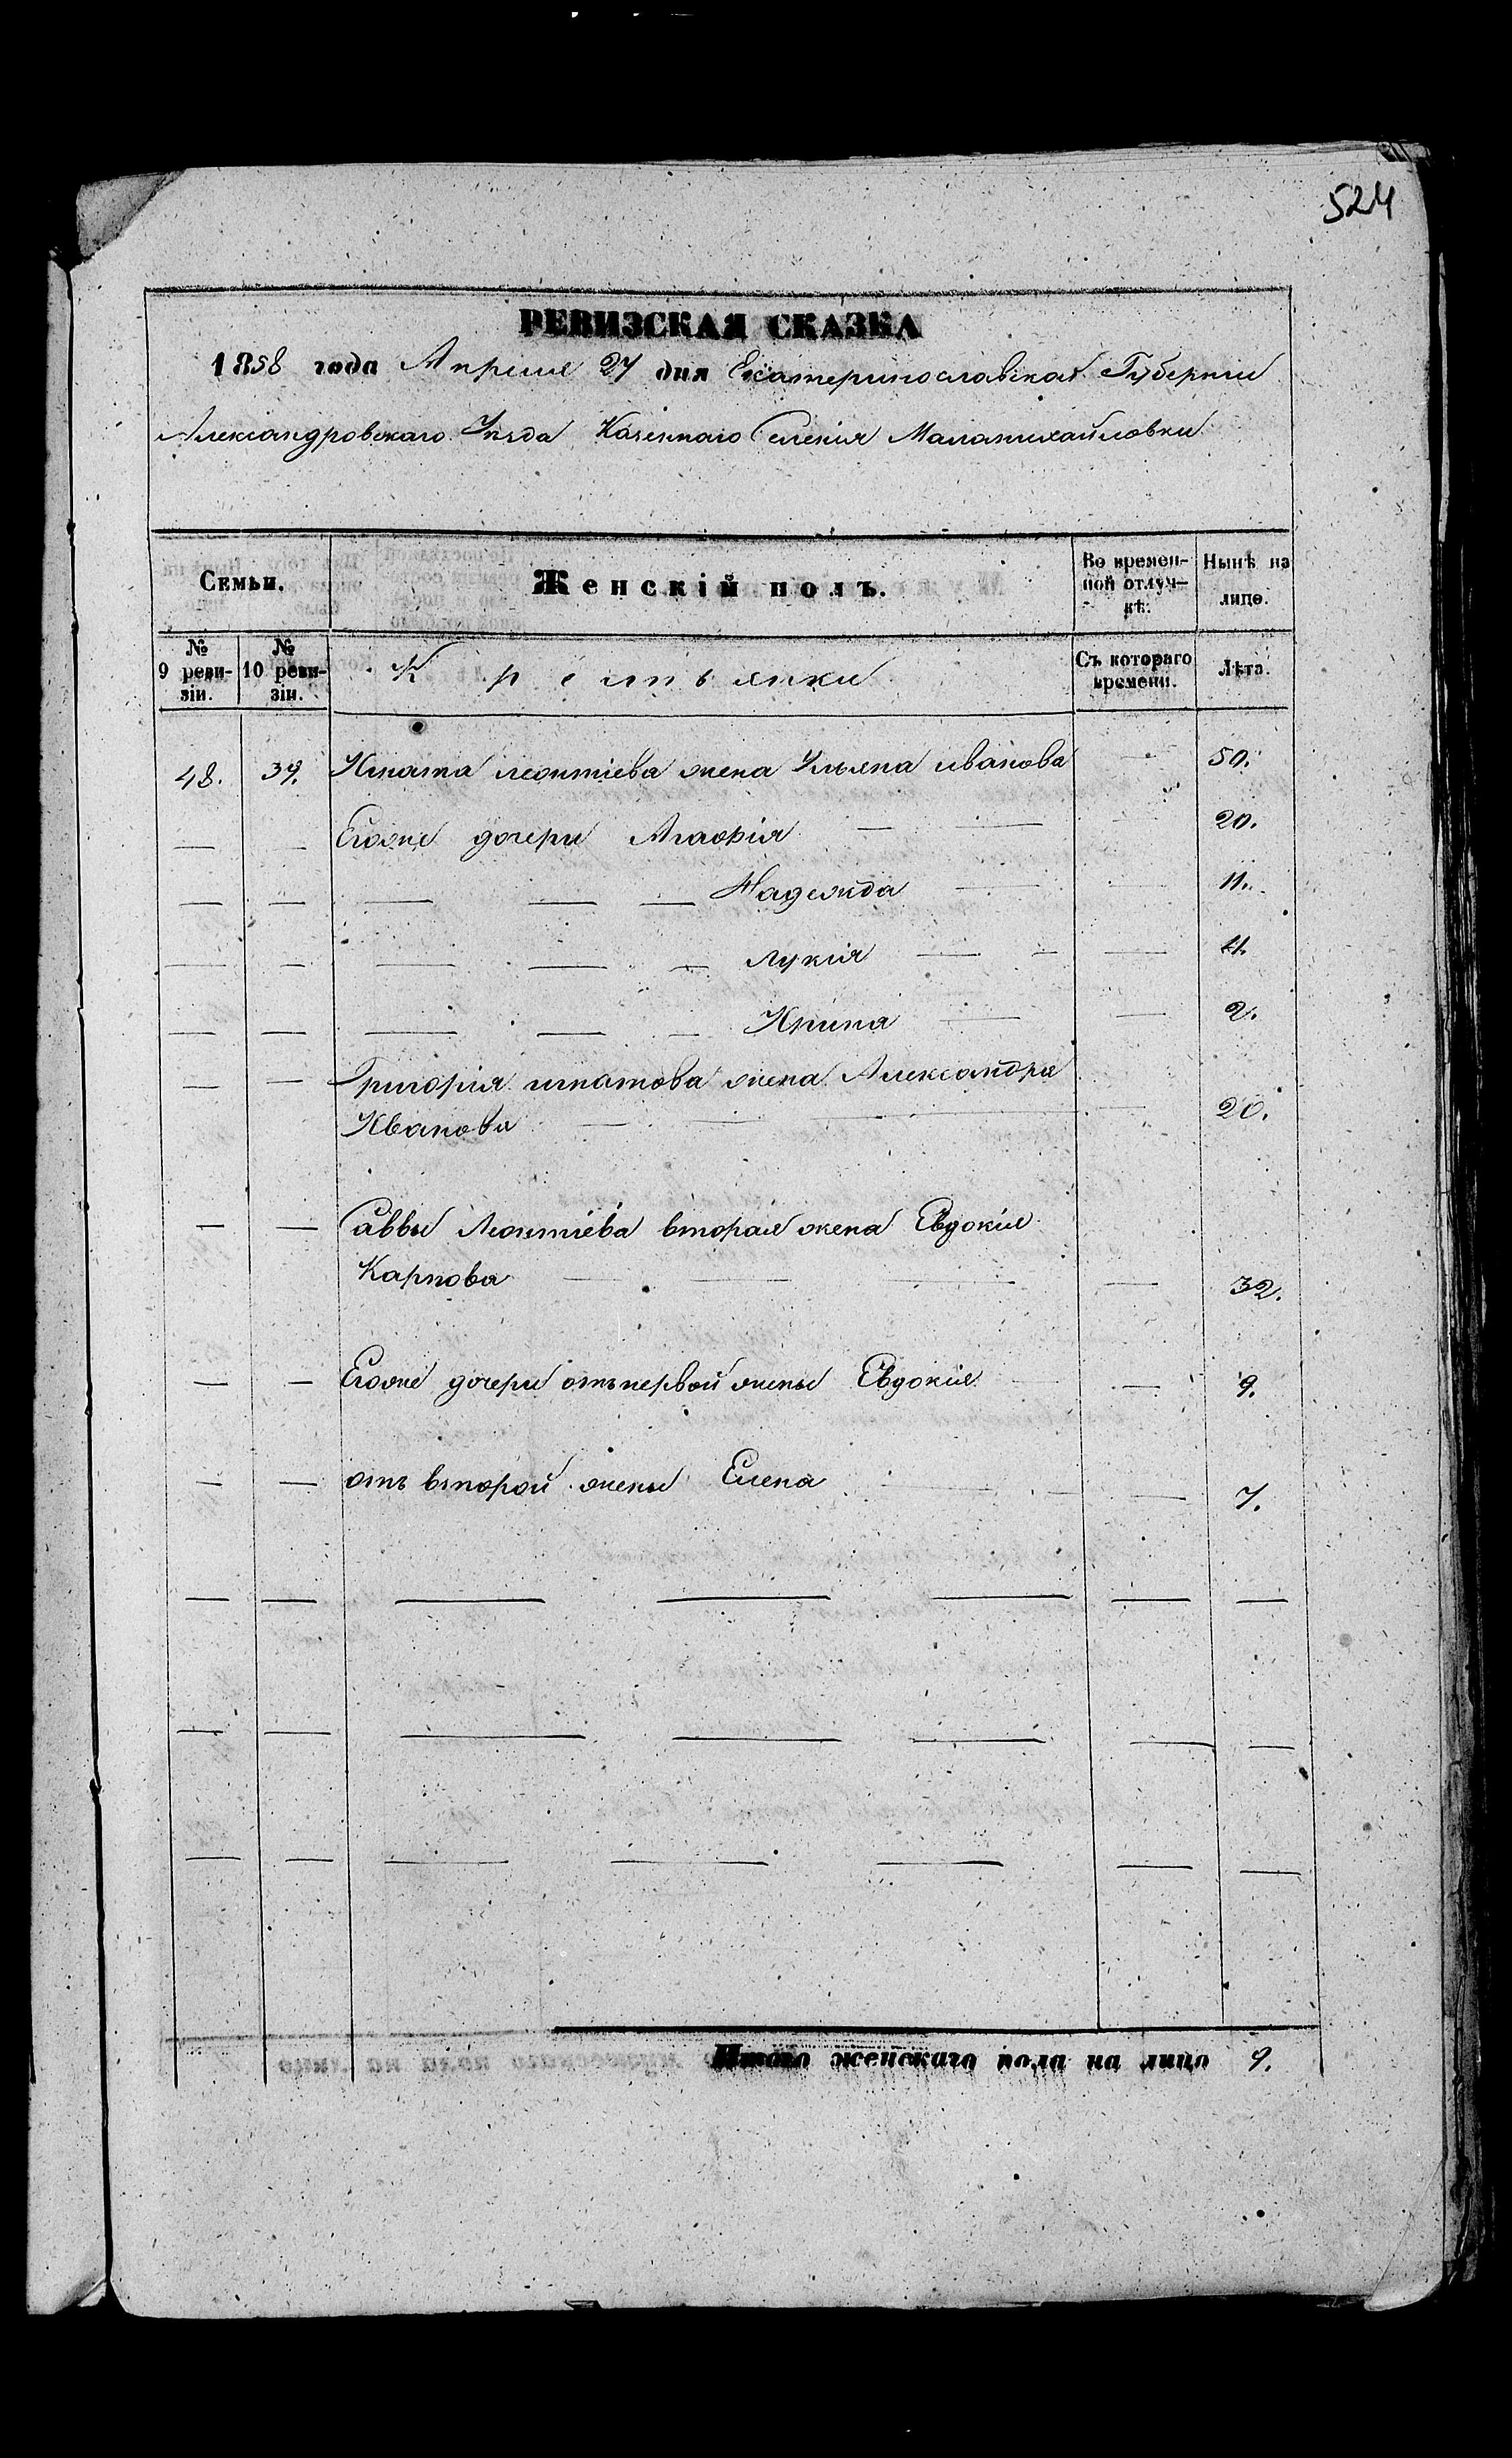 524
РЕВИЗСКАЯ СКАЗКА
1858 года Апреля 27 дня Екатеринославской Губернии
Александровскаго Уезда Казеннаго Селенія Маламихайловки
Семьи.
Женскій полъ.
Во времен-
ной отлуч-
кѣ.
Нынѣ на
лицо.
№
9 реви-
зіи.
№
10 реви-
зіи.
Крестьянки
Съ котораго
времени.
Лѣта.
48. 39. Игната леонтіева жена Ульяна иванова — 50.
— — Егоже дочери Агафія — — 20.
— — — — — Надежда — — 11.
— — — — — Лукія — — — 4.
— — — — — Ирина — — 2.
— — Григорія игнатова жена Александра
Иванова — — — — 20.
— — Саввы Леонтіева вторая жена Евдокія
Карпова — — — — 32.
— — Егоже дочери отъ первой жены Евдокія — 9.
— — отъ второй жены Елена — — — 7.
Итого женскаго пола на лицо 9.